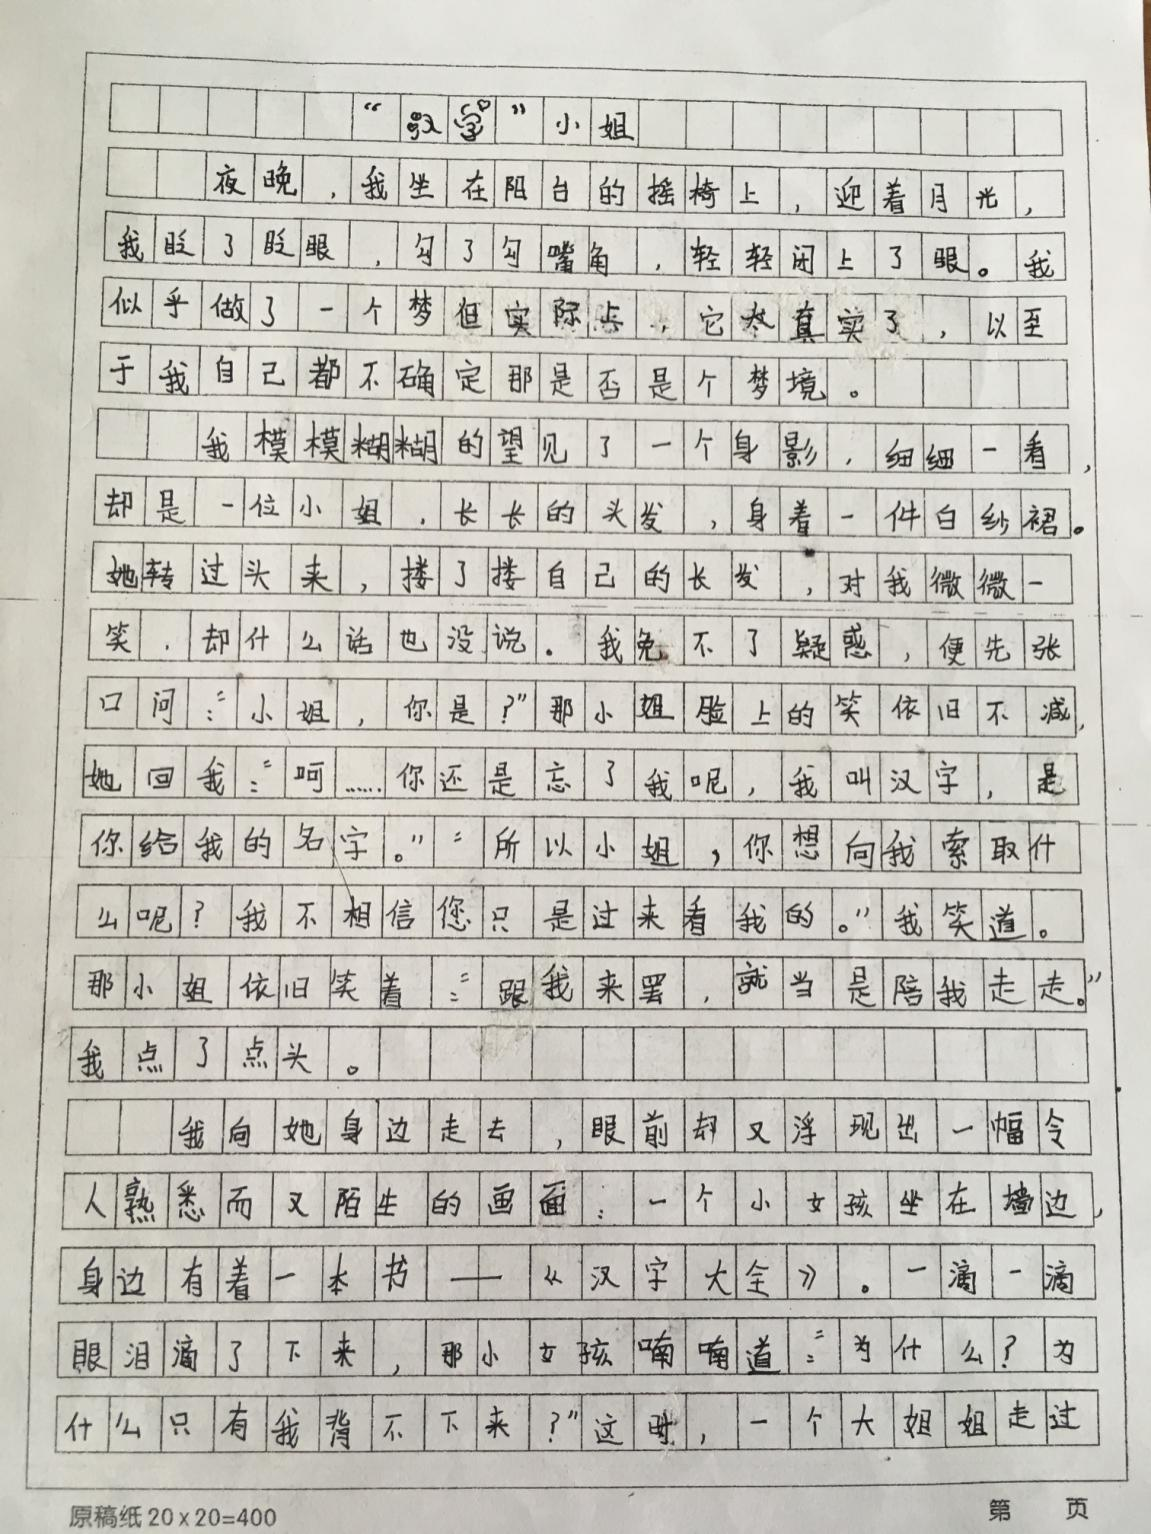 “汉字”小姐
夜晚,我坐在阳台的摇椅上,迎着月光,
我眨了眨眼,勾了勾嘴角,轻轻闭上了眼。我
似乎做了一个梦但实际上,它太真实了,以至
于我自己都不确定那是否是个梦境。
我模模糊糊的望见了一个身影,细细一看,
却是一位小姐,长长的头发,身着一件白纱裙。
她转过头来,搂了搂自己的长发,对我微微一
笑,却什么话也没说。我免不了疑惑,便先张
口问:“小姐,你是?”那小姐脸上的笑依旧不减,
她回我:“呵……你还是忘了我呢,我叫汉字,是
你给我的名字。”“所以小姐,你想向我索取什
么呢?我不相信您只是过来看我的。”我笑道。
那小姐依旧笑着:“跟我来罢,就当是陪我走走。”
我点了点头。
我向她身边走去,眼前却又浮现出一幅令
人熟悉而又陌生的画面:一个小女孩坐在墙边,
身边有着一本书——《汉字大全》。一滴一滴
眼泪滴了下来,那小女孩喃喃道:“为什么?为
什么只有我背不下来?”这时,一个大姐姐走过
原稿纸20×20=400
第 页